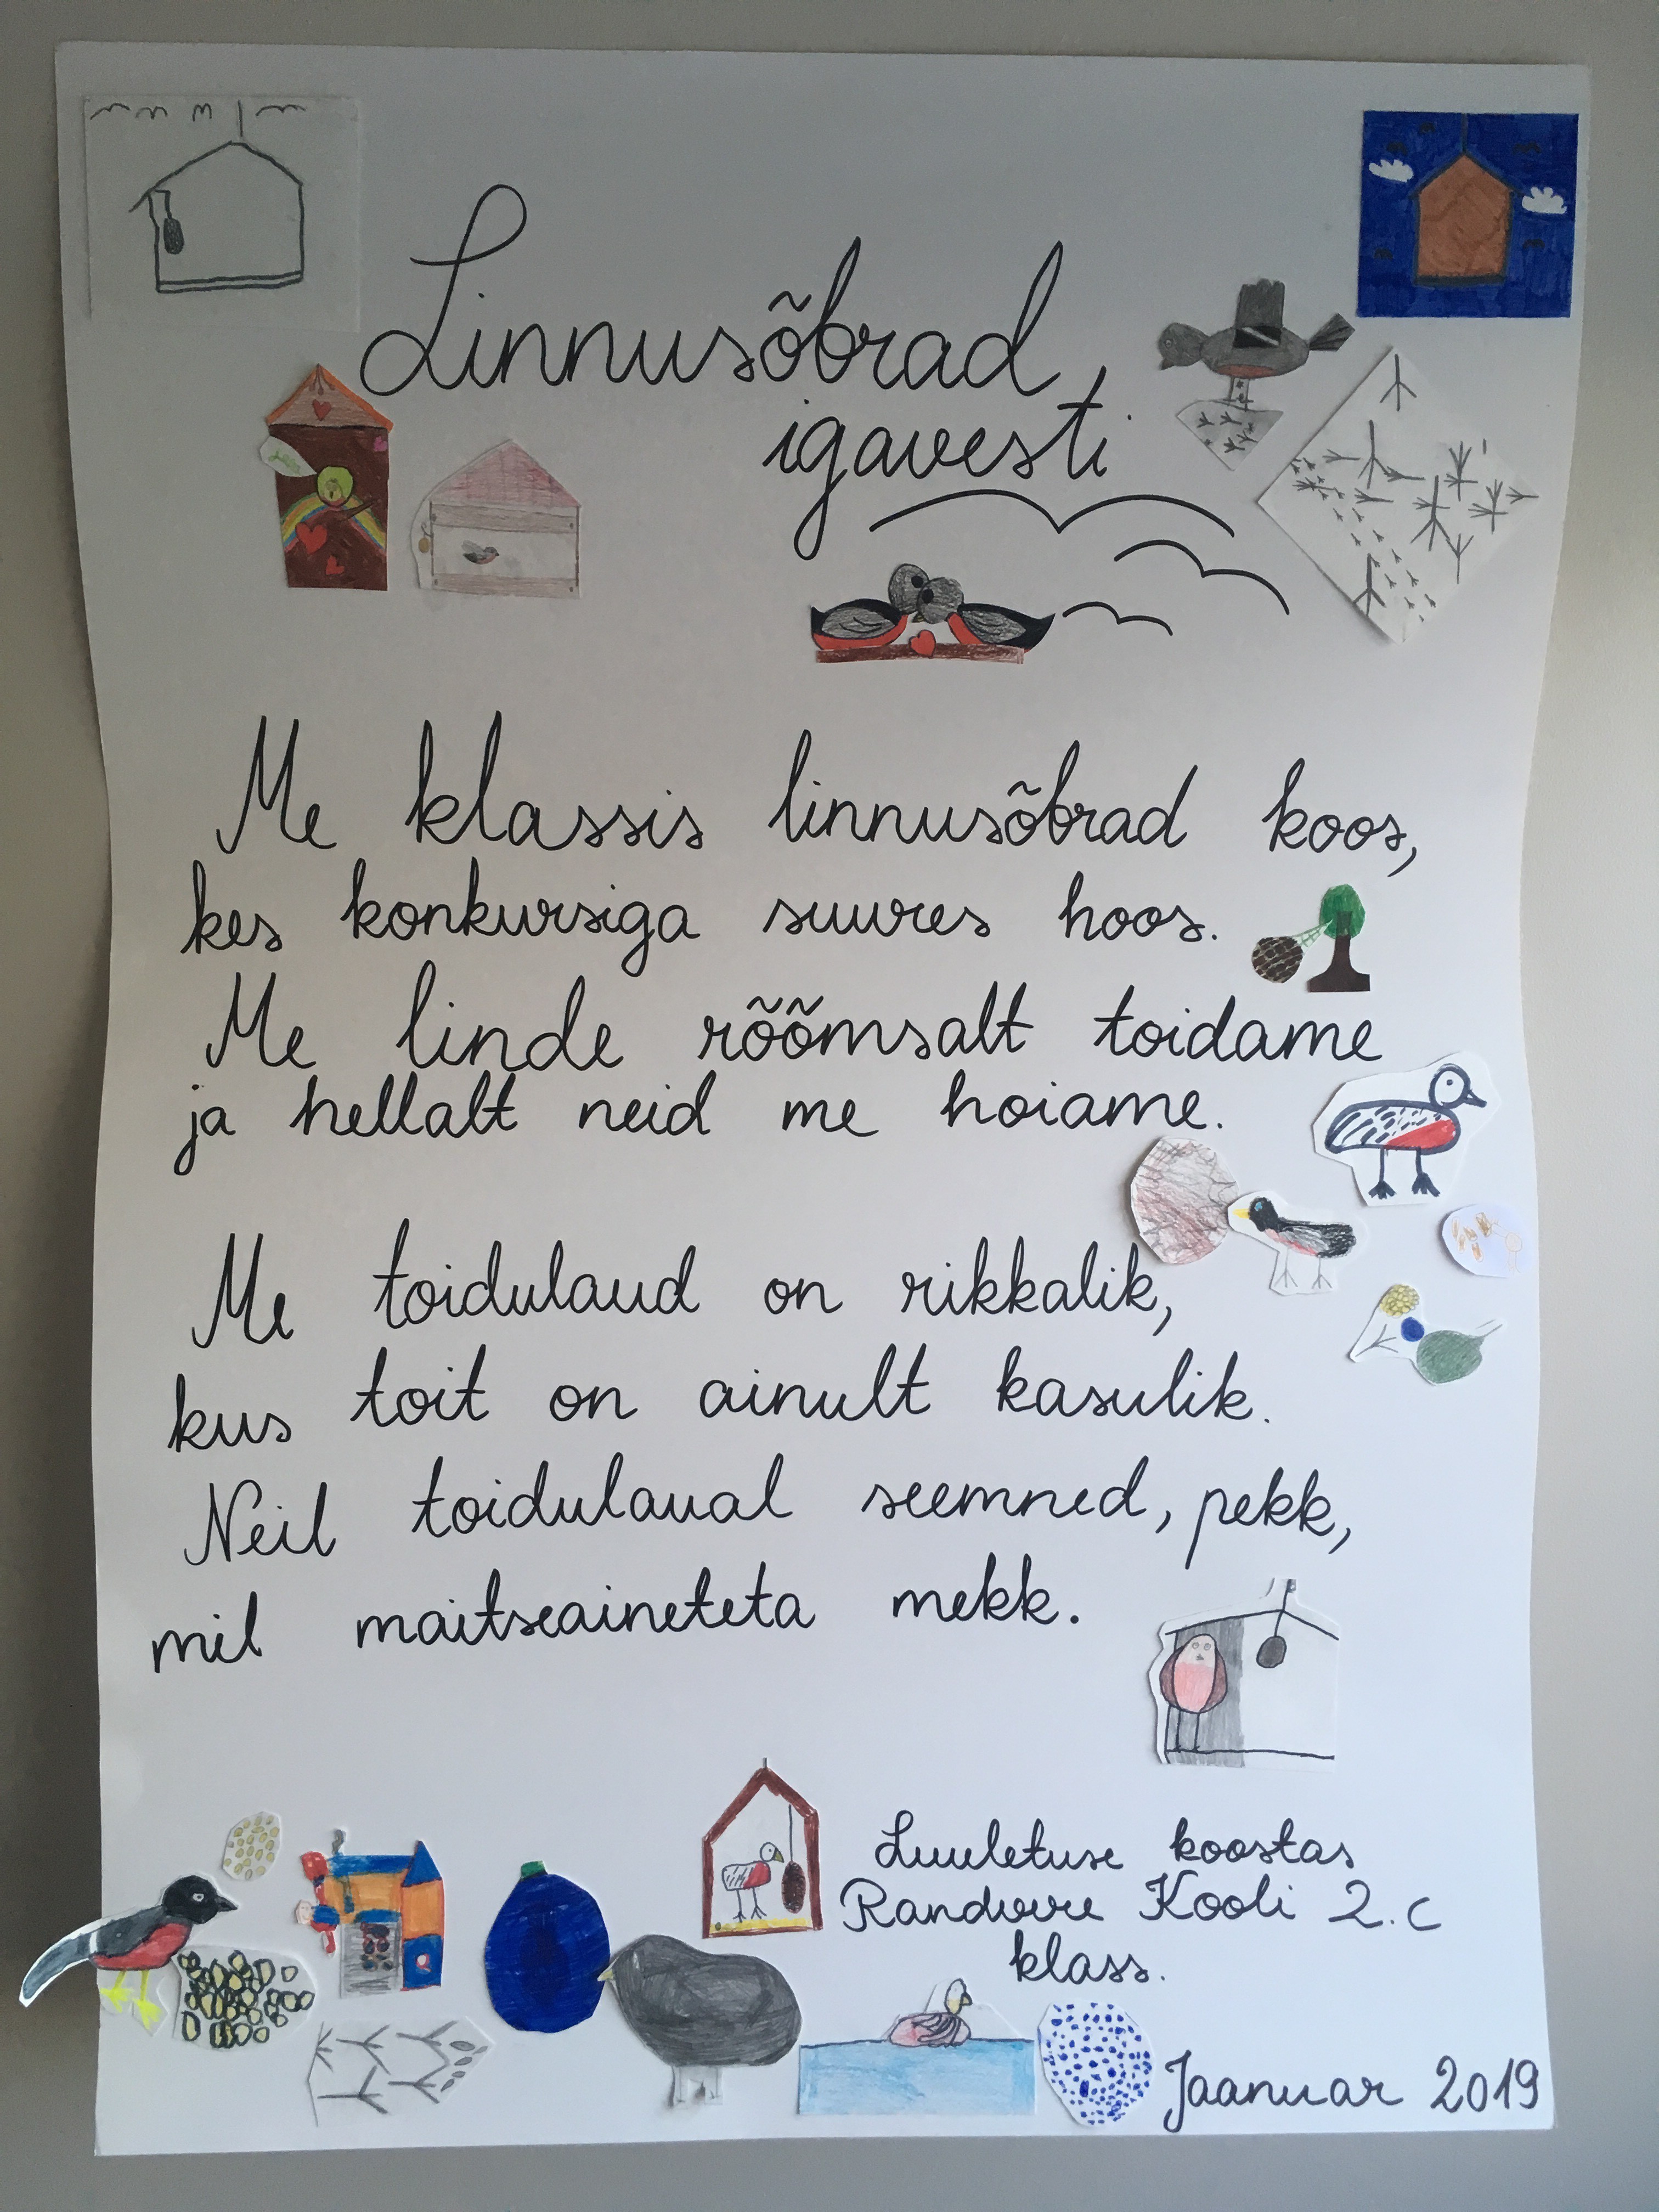 Linnusõbrad
igavesti
Me klassis linnusõbrad koos,
kes konkursiga suures hoos.
Me linde rõõmsalt toidame
ja hellalt neid me hoiame.
Me toidulaud on rikkalik,
kus toit on ainult kasulik.
Neil toidulaual seemned, pekk,
mil maitseaineteta mekk.
Luuletuse koostas
Randvere Kooli 2.c
klass.
Jaanuar 2019